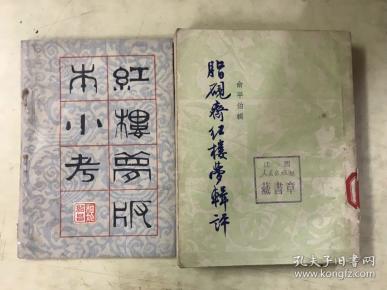 紅樓夢版
本小考
俞平伯輯
脂硯齋紅樓夢輯評
藏書章
孔夫子旧书网